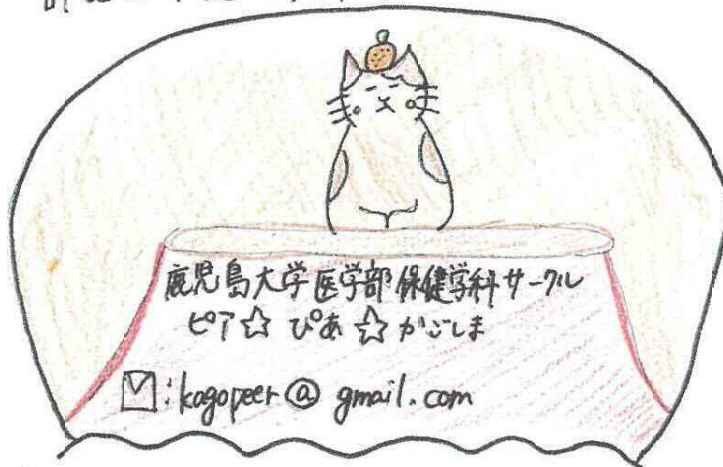 鹿児島大学医学部保健学科サークル
ピア☆ぴあ☆かごしま
:kagopeer@gmail.com